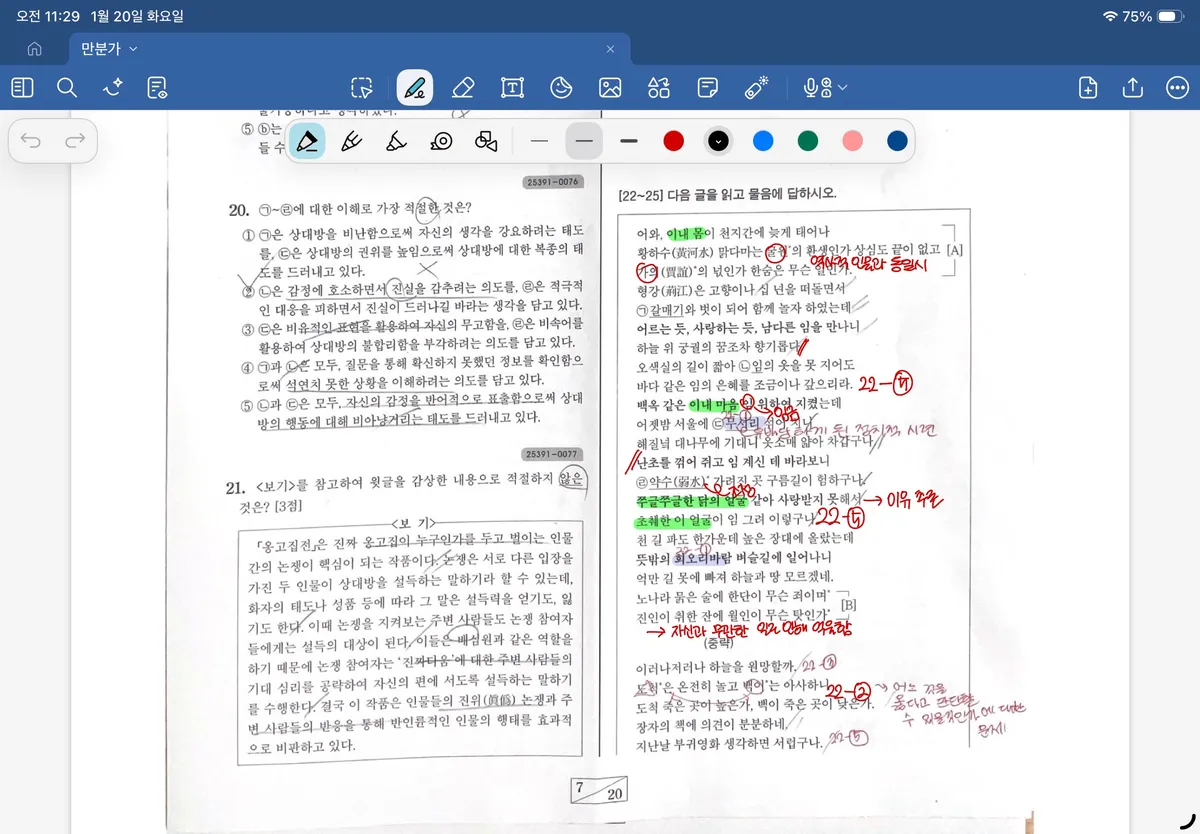 오전 11:29 1월 20일 화요일
75%
만분가
⑤ ⓑ는
들 수
25391-0076
20. ㉠~㉣에 대한 이해로 가장 적절한 것은?
① ㉠은 상대방을 비난함으로써 자신의 생각을 강요하려는 태도
를, ㉢은 상대방의 권위를 높임으로써 상대방에 대한 복종의 태
도를 드러내고 있다.
② ㉡은 감정에 호소하면서 진실을 감추려는 의도를, ㉣은 적극적
인 대응을 피하면서 진실이 드러나길 바라는 생각을 담고 있다.
③ ㉢은 비유적인 표현을 활용하여 자신의 무고함을, ㉣은 비속어를
활용하여 상대방의 불합리함을 부각하려는 의도를 담고 있다.
④ ㉠과 ㉡은 모두, 질문을 통해 확신하지 못했던 정보를 확인함으
로써 석연치 못한 상황을 이해하려는 의도를 담고 있다.
⑤ ㉡과 ㉢은 모두, 자신의 감정을 반어적으로 표출함으로써 상대
방의 행동에 대해 비아냥거리는 태도를 드러내고 있다.
25391-0077
21. <보기>를 참고하여 윗글을 감상한 내용으로 적절하지 않은
것은? [3점]
<보 기>
「옹고집전」은 진짜 옹고집의 누구인가를 두고 벌이는 인물
간의 논쟁이 핵심이 되는 작품이다. 논쟁은 서로 다른 입장을
가진 두 인물이 상대방을 설득하는 말하기라 할 수 있는데,
화자의 태도나 성품 등에 따라 그 말은 설득력을 얻기도, 잃
기도 한다. 이때 논쟁을 지켜보는 주변 사람들도 논쟁 참여자
들에게는 설득의 대상이 된다. 이들은 배심원과 같은 역할을
하기 때문에 논쟁 참여자는 '진짜다움'에 대한 주변 사람들의
기대 심리를 공략하여 자신의 편에 서도록 설득하는 말하기
를 수행한다. 결국 이 작품은 인물들의 진위(眞僞) 논쟁과 주
변 사람들의 반응을 통해 반인륜적인 인물의 행태를 효과적
으로 비판하고 있다.
[22~25] 다음 글을 읽고 물음에 답하시오.
어와, 이내 몸이 천지간에 늦게 태어나
황하수(黃河水) 맑다마는 굴원*의 환생인가 상심도 끝이 없고 [A]
역사적 인물과 동일시
가의(賈誼)*의 넋인가 한숨은 무슨 일인가.
형강(荊江)은 고향이나 십 년을 떠돌면서
㉠갈매기와 벗이 되어 함께 놀자 하였는데
어르는 듯, 사랑하는 듯, 남다른 임을 만나니
하늘 위 궁궐의 꿈조차 향기롭다.
오색실의 길이 짧아 ㉡임의 옷을 못 지어도
바다 같은 임의 은혜를 조금이나 갚으리라. 22-㉯
백옥 같은 이내 마음 임 위하여 지켰는데
임금
어젯밤 서울에 ㉢무서리 섞어 치니
정치적 시련
해질녘 대나무에 기대니 옷소매 얇아 차갑구나.
난초를 꺾어 쥐고 임 계신 데 바라보니
㉣약수(弱水)* 가려진 곳 구름길이 험하구나.
쭈글쭈글한 닭의 얼굴 같아 사랑받지 못해서 → 이유 추측
초췌한 이 얼굴이 임 그려 이렇구나.
천 길 파도 한가운데 높은 장대에 올랐는데
뜻밖의 회오리바람 벼슬길에 일어나니
억만 길 못에 빠져 하늘과 땅 모르겠네.
노나라 묽은 술에 한단이 무슨 죄이며*
[B]
진인이 취한 잔에 월인이 무슨 탓인가*
→ 자신과 무관한 일로 인해 억울함
(중략)
이러나저러나 하늘을 원망할까. 22-③
도척*은 온전히 놀고 백이*는 아사하니 22-②
도척 죽은 곳이 높은가, 백이 죽은 곳이 낮은가.
→ 어느 것을
옳다고 판단할
수 있을것인가에 대한
문제
장자의 책에 의견이 분분하네.
지난날 부귀영화 생각하면 서럽구나. 22-⑤
7
20